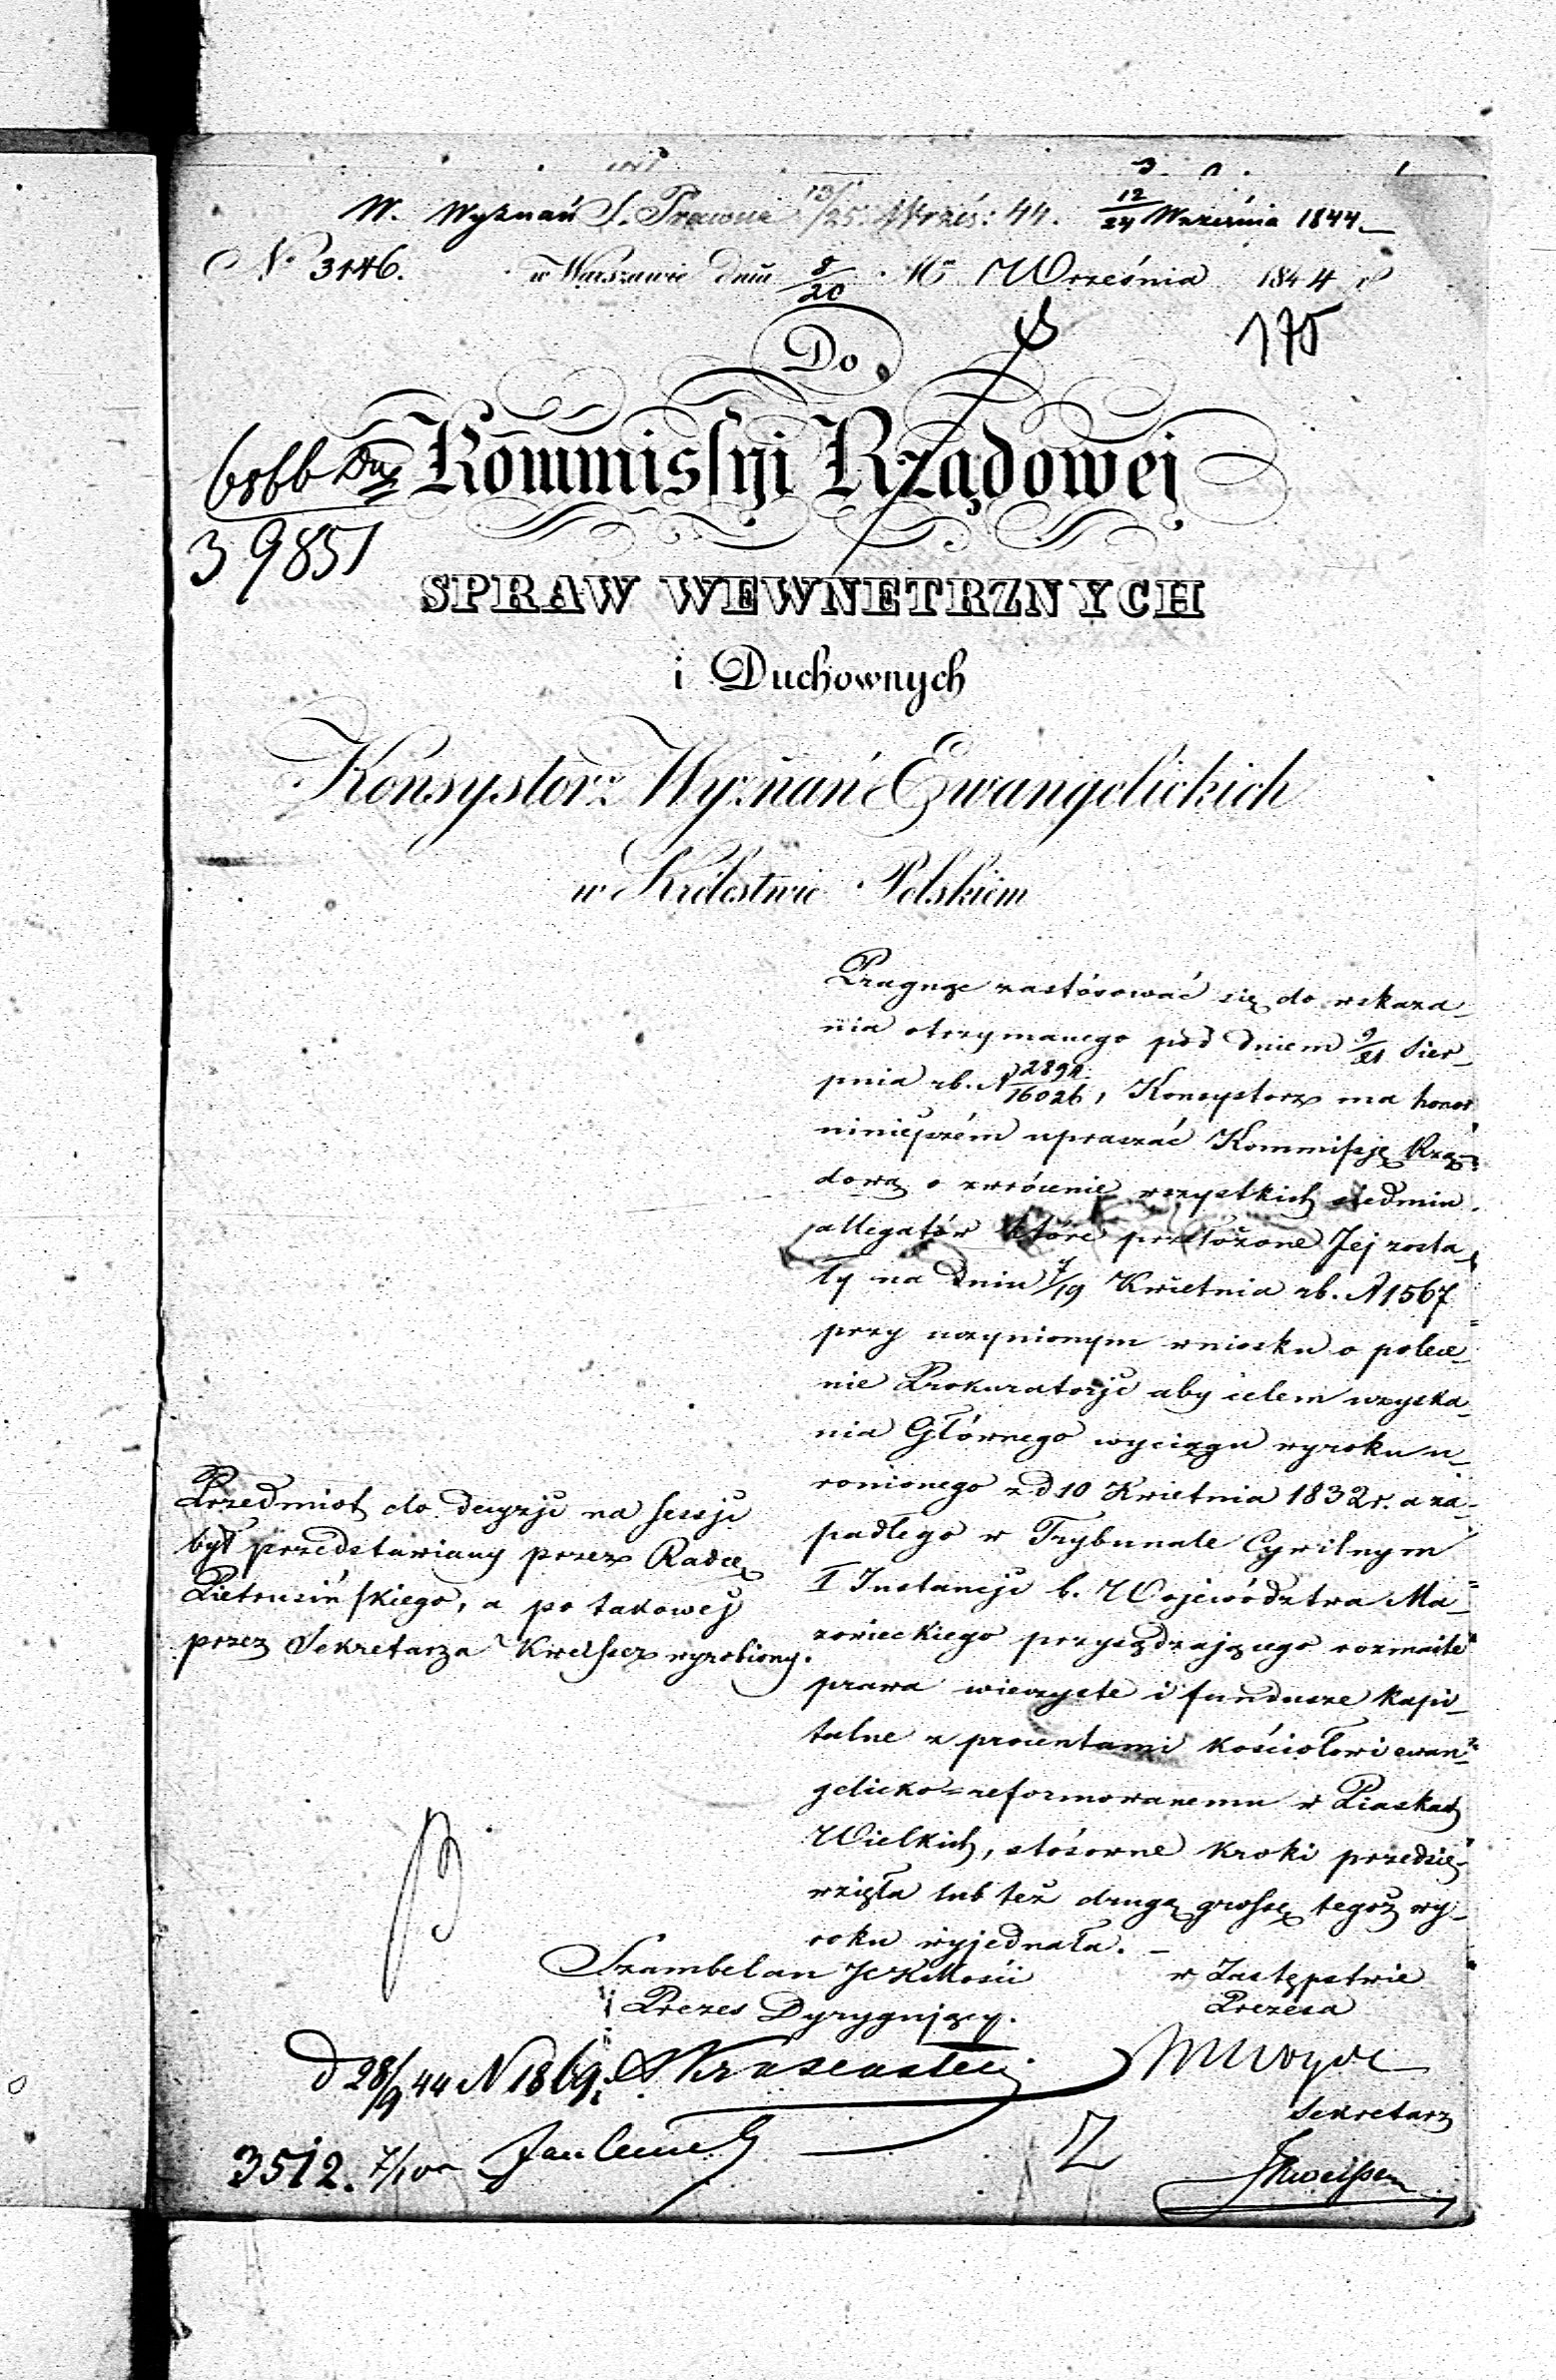 W. Wyznań S. Prawna 13/25 Wrześ: 44. 12/24 Września 1844
N° 3146. w Warszawie dnia 8/20 Mca Września 1844 r
175
Do
6866
39851
Kommissyi Rządowej
SPRAW WEWNETRZNYCH
i Duchownych
Konsystorz Wyznań Ewangelickich
w Królestwie Polskiem
Pragnąc zastósować się do wskaza-
nia otrzymanego pod dniem 9/21 Sier-
pnia rb. N 2894/16026, Konsystorz ma honor
niniejszém upraszać Kommissję Rzą-
dową o zwrócenie wszystkich siedmiu
allegatów które przełożone Jej zosta-
ły na dniu 7/19 Kwietnia rb. N 1567
przy uczynionym wniosku o polece-
nie Prokuratorji aby celem uzyska-
nia Głównego wyciągu wyroku u-
ronionego z d 10 Kwietnia 1832 r. a za-
padłego w Trybunale Cywilnym
I Instancji b. Województwa Ma-
zowieckiego przysądzającego rozmaite
prawa wieczyste i fundusze kapi-
talne z procentami kościołowi ewan-
gelicko=reformowanemu w Piaskach
Wielkich, stósowne kroki przedsię-
wzięła lub też drugą grossę tegoż wy-
roku wyjednała. -
Przedmiot do decyzji na sessji
był przedstawiany przez Radcę
Pietrusińskiego, a po takowej
przez Sekretarza Kweisser wyrobiony.
Szambelan JCKMości
Prezes Dyrygujący.
w Zastępstwie
Prezesa
d 28/9 44 N 1869
Sekretarz
3512. 7/10
JKweisser